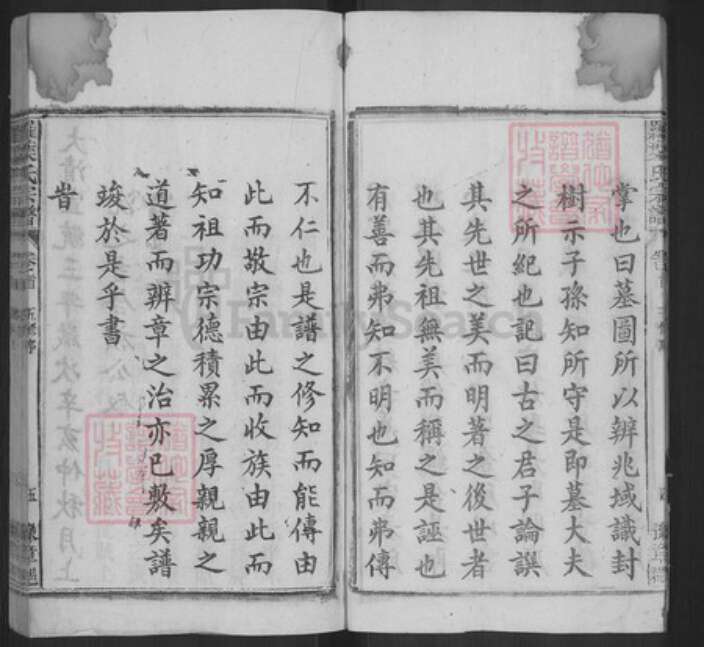 掌也曰墓圖所以辨兆域識封
樹示子孫知所守是即墓大夫
之所紀也記曰古之君子論譔
其先世之美而明著之後世者
也其先祖無美而稱之是誣也
有善而弗知不明也知而弗傳
不仁也是譜之修知而能傳由
此而敬宗由此而收族由此而
知祖功宗德積累之厚親親之
道著而辨章之治亦已敷矣譜
竣於是乎書
旹
葉氏宗譜
卷首
五修序
五
大清宣統三年歲次辛亥仲秋月上
FamilySearch